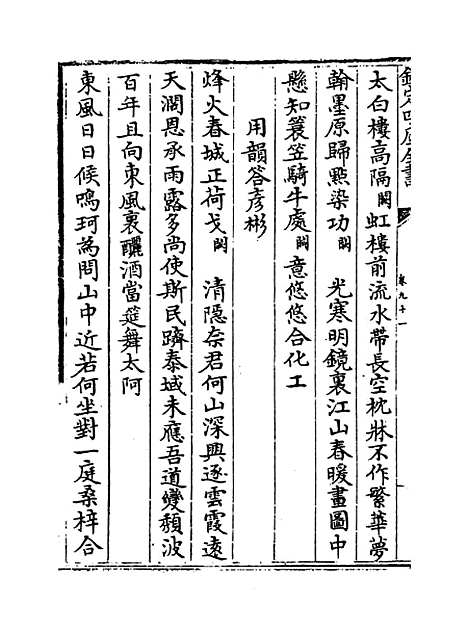 欽定四庫全書
卷九十一
太白樓高隔闕虹樓前流水帶長空枕牀不作繁華夢
翰墨原歸㸃染功闕　光寒明鏡裏江山春暖畫圖中
懸知簑笠騎牛處闕意悠悠合化工
用韻答彥彬
烽火春城正荷戈闕　清隱奈君何山深興逐雲霞遠
天濶恩承雨露多尚使斯民躋泰域未應吾道變頽波
百年且向東風裏釃酒當筵舞太阿
東風日日候鳴珂為問山中近若何坐對一庭桑梓合